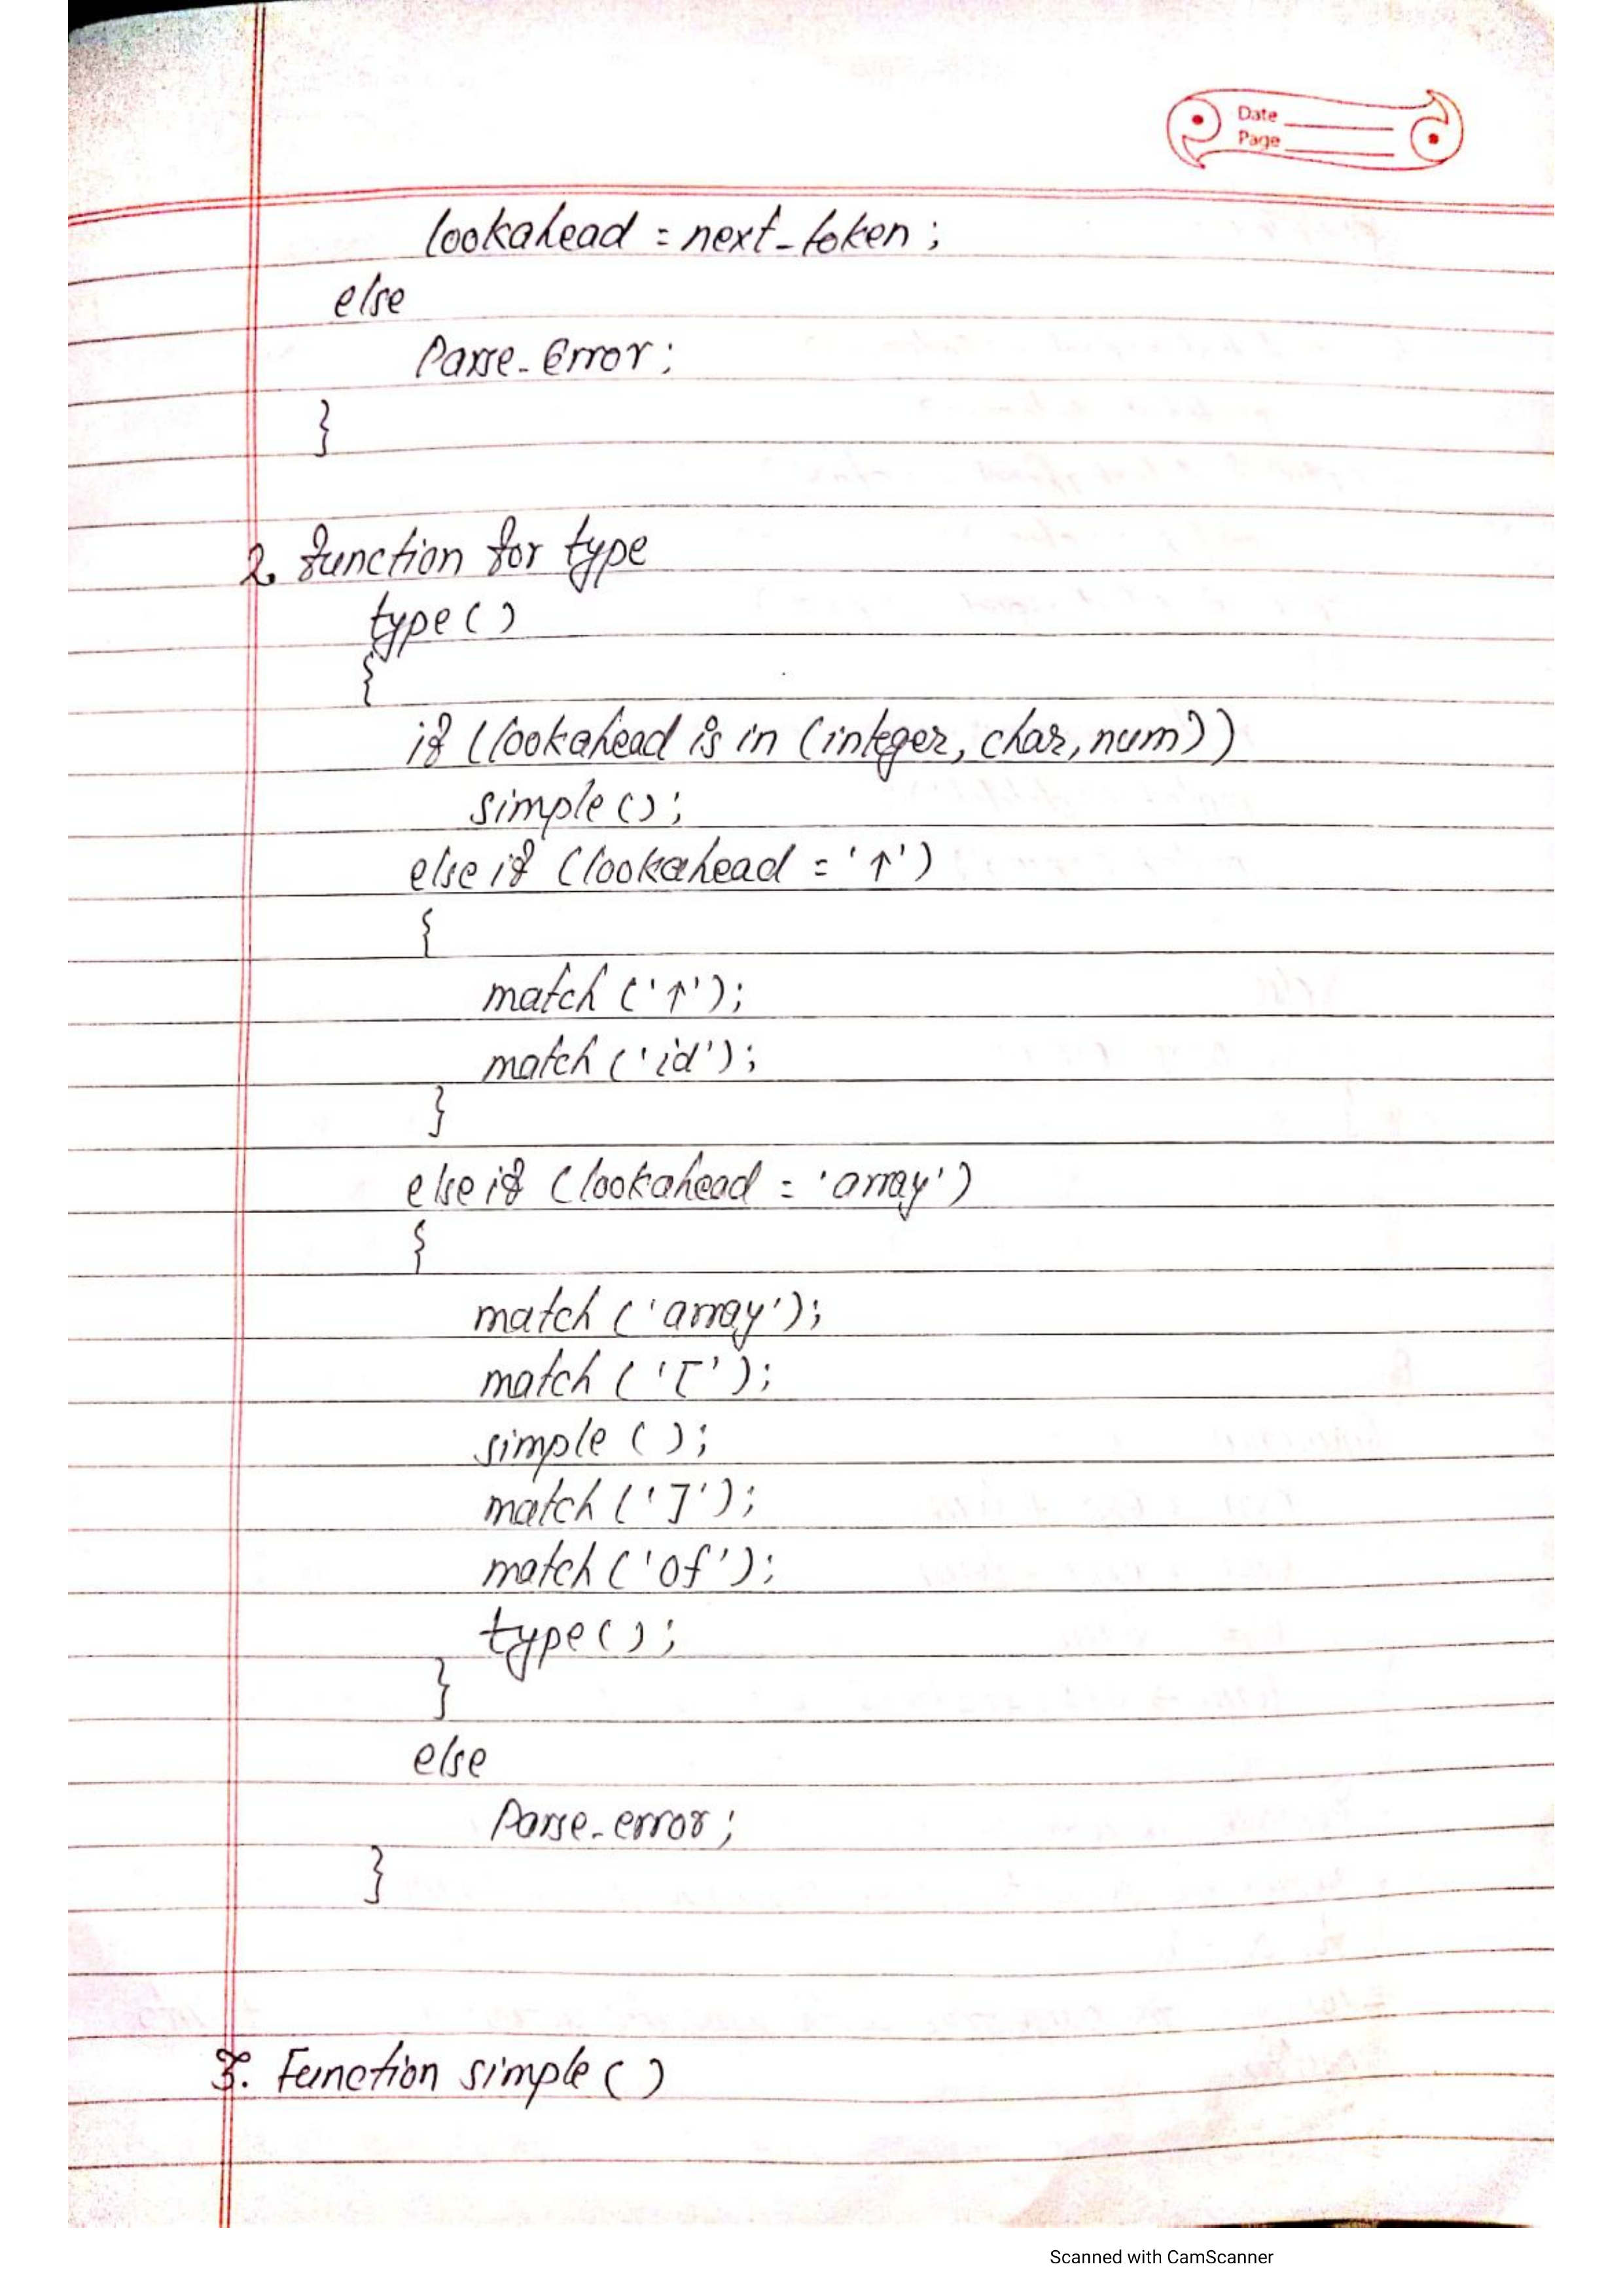 Date
Page
lookahead = next_token ;
else
Parse_Error ;
}
2. function for type
type ( )
{
if (lookahead is in (integer, char, num))
simple ( ) ;
else if (lookahead = '↑')
{
match ('↑') ;
match ('id') ;
}
else if (lookahead = 'array')
{
match ('array') ;
match ('[') ;
simple ( ) ;
match (']') ;
match ('of') ;
type ( ) ;
}
else
Parse_error ;
}
3. Function simple ( )
Scanned with CamScanner